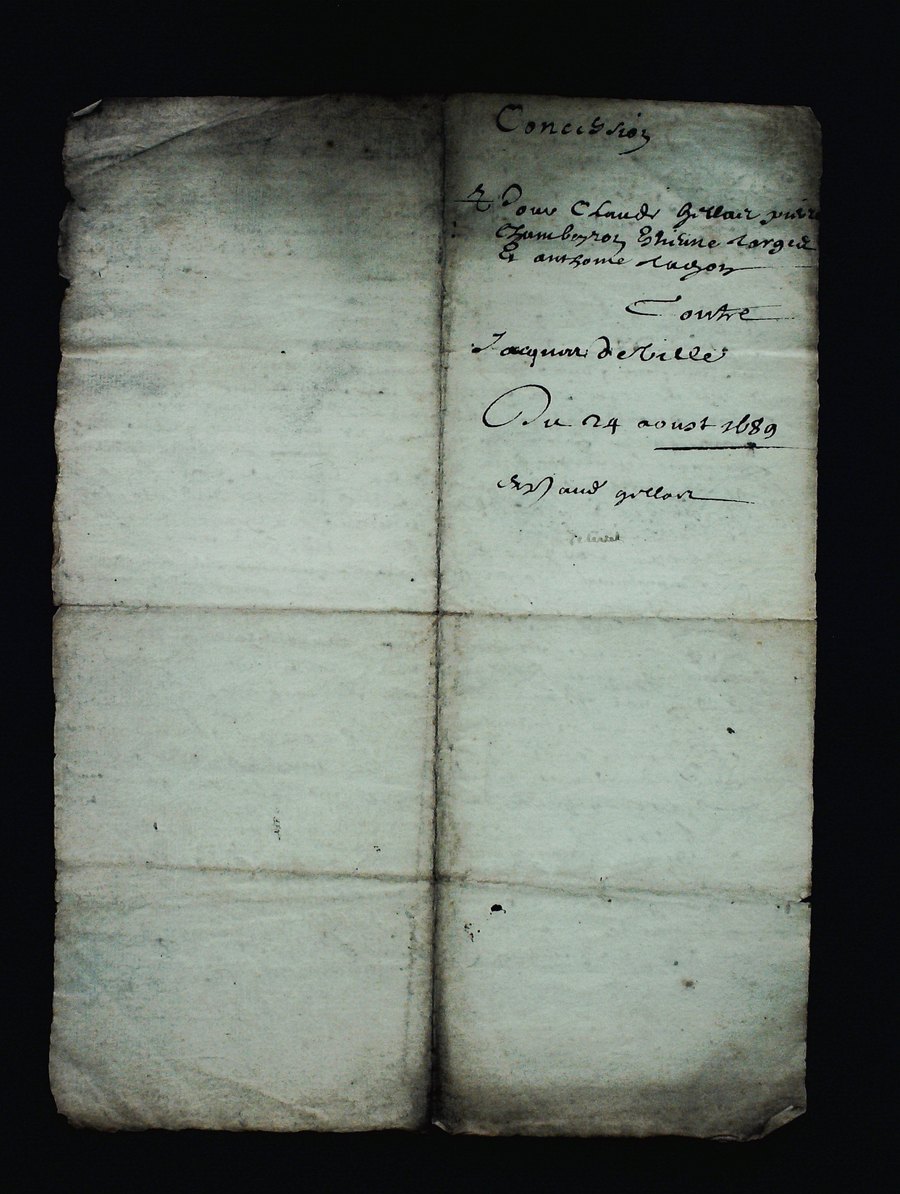 Concession
Pour Claude gillar pierre
Chambeyron Estienne Larger
Et anthoine
Contre
Jacques deville
Du 24 aoust 1689
gillar